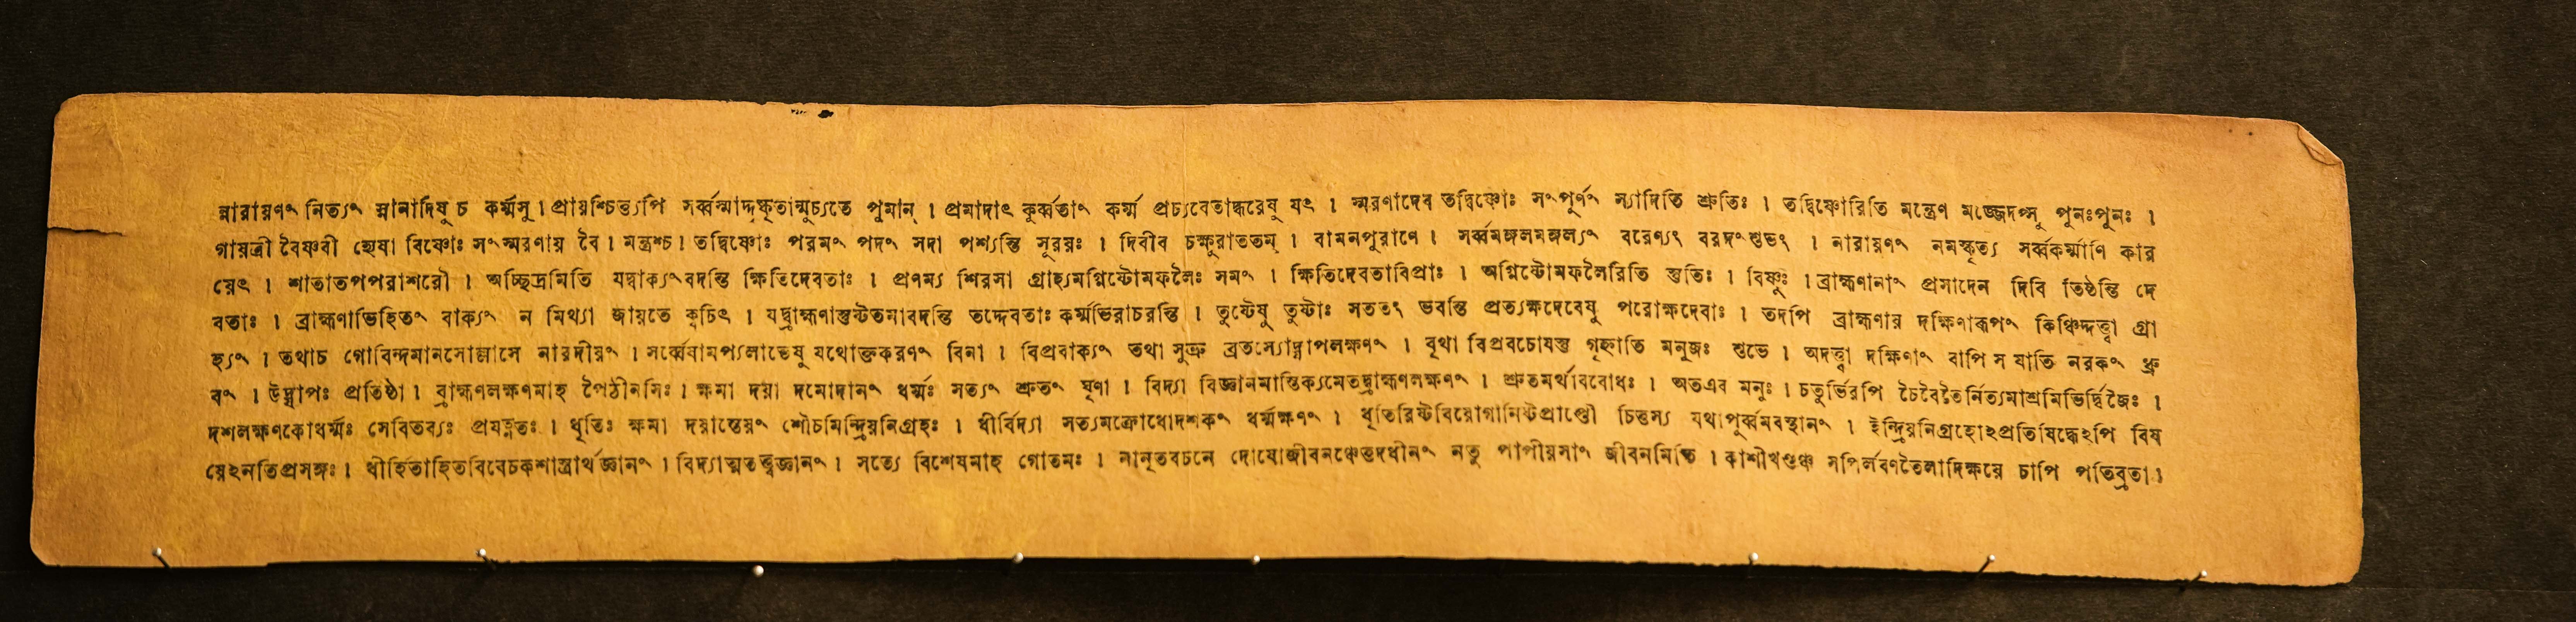 ন্নারায়ণং নিত্যং স্নানাদিষু চ কর্ম্মসু। প্রায়শ্চিত্ত্যপি সর্ব্বস্মাদ্দুষ্কৃতান্মুচ্যতে পুমান্ । প্রমাদাৎ কুর্ব্বতাং কর্ম্ম প্রচ্যবেতাদ্ধরেষু যৎ । স্মরণাদেব তদ্বিষ্ণোঃ সংপূর্ণং স্যাদিতি শ্রুতিঃ । তদ্বিষ্ণোরিতি মন্ত্রেণ মজ্জেদপ্সু পুনঃপুনঃ ।
গায়ত্রী বৈষ্ণবী হ্যেষা বিষ্ণোঃ সংস্মরণায় বৈ। মন্ত্রশ্চ। তদ্বিষ্ণোঃ পরমং পদং সদা পশ্যন্তি সূরয়ঃ । দিবীব চক্ষুরাততম্ । বামনপুরাণে । সর্ব্বমঙ্গলমঙ্গল্যং বরেণ্যং বরদংশুভং । নারায়ণং নমস্কৃত্য সর্ব্বকর্ম্মাণি কার
য়েৎ । শাতাতপপরাশরৌ । অচ্ছিদ্রমিতি যদ্বাক্যংবদন্তি ক্ষিতিদেবতাঃ । প্রণম্য শিরসা গ্রাহ্যমগ্নিষ্টোমফলৈঃ সমং । ক্ষিতিদেবতাবিপ্রাঃ । অগ্নিষ্টোমফলৈরিতি স্তুতিঃ । বিষ্ণুঃ । ব্রাহ্মণানাং প্রসাদেন দিবি তিষ্ঠন্তি দে
বতাঃ । ব্রাহ্মণাভিহিতং বাক্যং ন মিথ্যা জায়তে ক্বচিৎ । যদ্ব্রাহ্মণাস্তুষ্টতমাবদন্তি তদ্দেবতাঃ কর্ম্মভিরাচরন্তি । তুষ্টেষু তুষ্টাঃ সততং ভবন্তি প্রত্যক্ষদেবেষু পরোক্ষদেবাঃ । তদপি ব্রাহ্মণায় দক্ষিণারূপং কিঞ্চিদ্দত্ত্বা গ্রা
হ্যং । তথাচ গোবিন্দমানসোল্লাসে নারদীয়ং । সর্ব্বেষামপ্যলাভেষু যথোক্তকরণং বিনা । বিপ্রবাক্যং তথা সুভ্রু ব্রতস্যোদ্যাপলক্ষণং । বৃথা বিপ্রবচোযস্তু গৃহ্নাতি মনুজঃ শুভে । অদত্ত্বা দক্ষিণাং বাপি স যাতি নরকং ধ্রু
বং । উদ্যাপঃ প্রতিষ্ঠা। ব্রাহ্মণলক্ষণমাহ পৈঠীনসিঃ। ক্ষমা দয়া দমোদানং ধর্ম্মঃ সত্যং শ্রুতং ঘৃণা । বিদ্যা বিজ্ঞানমাস্তিক্যমেতদ্ব্রাহ্মণলক্ষণং । শ্রুতমর্থাববোধঃ । অতএব মনুঃ। চতুর্ভিরপি চৈবৈতৈর্নিত্যমাশ্রমিভির্দ্বিজৈঃ ।
দশলক্ষণকোধর্ম্মঃ সেবিতব্যঃ প্রযত্নতঃ । ধৃতিঃ ক্ষমা দয়াস্তেয়ং শৌচমিন্দ্রিয়নিগ্রহঃ । ধীর্বিদ্যা সত্যমক্রোধোদশকং ধর্ম্মক্ষণং । ধৃতিরিষ্টবিয়োগানিষ্টপ্রাপ্তৌ চিত্তস্য যথাপূর্ব্বমবস্থানং । ইন্দ্রিয়নিগ্রহোঽপ্রতিষিদ্ধেঽপি বিষ
য়েঽনতিপ্রসঙ্গঃ। ধীর্হিতাহিতবিবেচকশাস্ত্রার্থজ্ঞানং । বিদ্যাত্মতত্ত্বজ্ঞানং । সত্যে বিশেষমাহ গোতমঃ । নানৃতবচনে দোষোজীবনঞ্চেত্তদধীনং নতু পাপীয়সাং জীবনমিতি । কাশীখণ্ডঞ্চ সর্পির্লবণতৈলাদিক্ষয়ে চাপি পতিব্রতা।